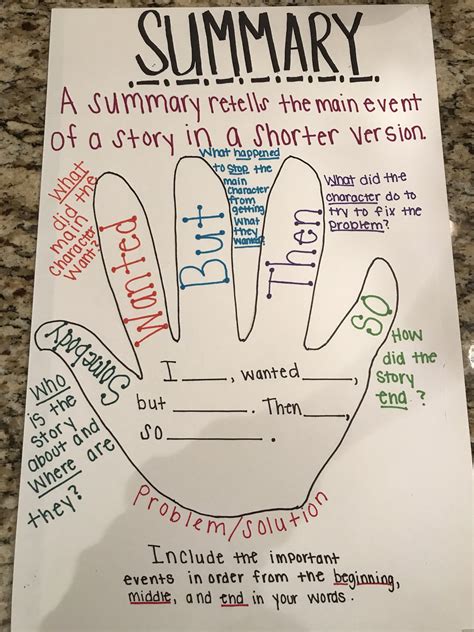 SUMMARY
A summary retells the main event
of a story in a shorter version.
Somebody
Who
is the
story
about and
Where are
they?
Wanted
What
did the
main
character
want?
But
What happened
to stop the
main
character
from
getting
what
they
wanted?
Then
What did the
character do to
try to fix the
problem?
SO
How
did the
story
end?
I ____, wanted ____,
but ____. Then ____,
so ____.
Problem/Solution
Include the important
events in order from the beginning,
middle, and end in your words.